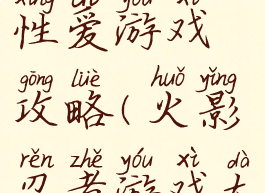 xìng ài yóu xì
性爱游戏
gōng lüè huǒ yǐng
攻略(火影
rěn zhě yóu xì dà
忍者游戏大